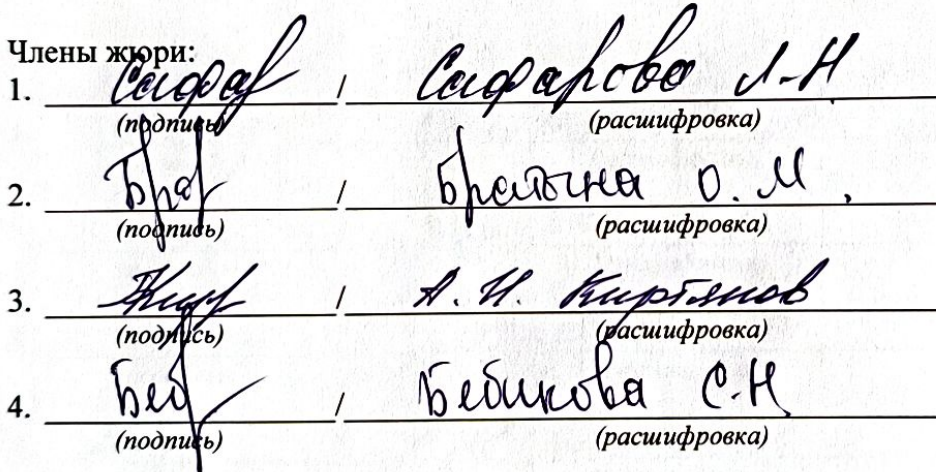 Члены жюри:
1. Сафар / Сафарова Л.Н.
(подпись) (расшифровка)
2. Бра / Братына О.М.
(подпись) (расшифровка)
3. / А.Н. Киртянов
(подпись) (расшифровка)
4. Беб / Бебикова С.Н
(подпись) (расшифровка)